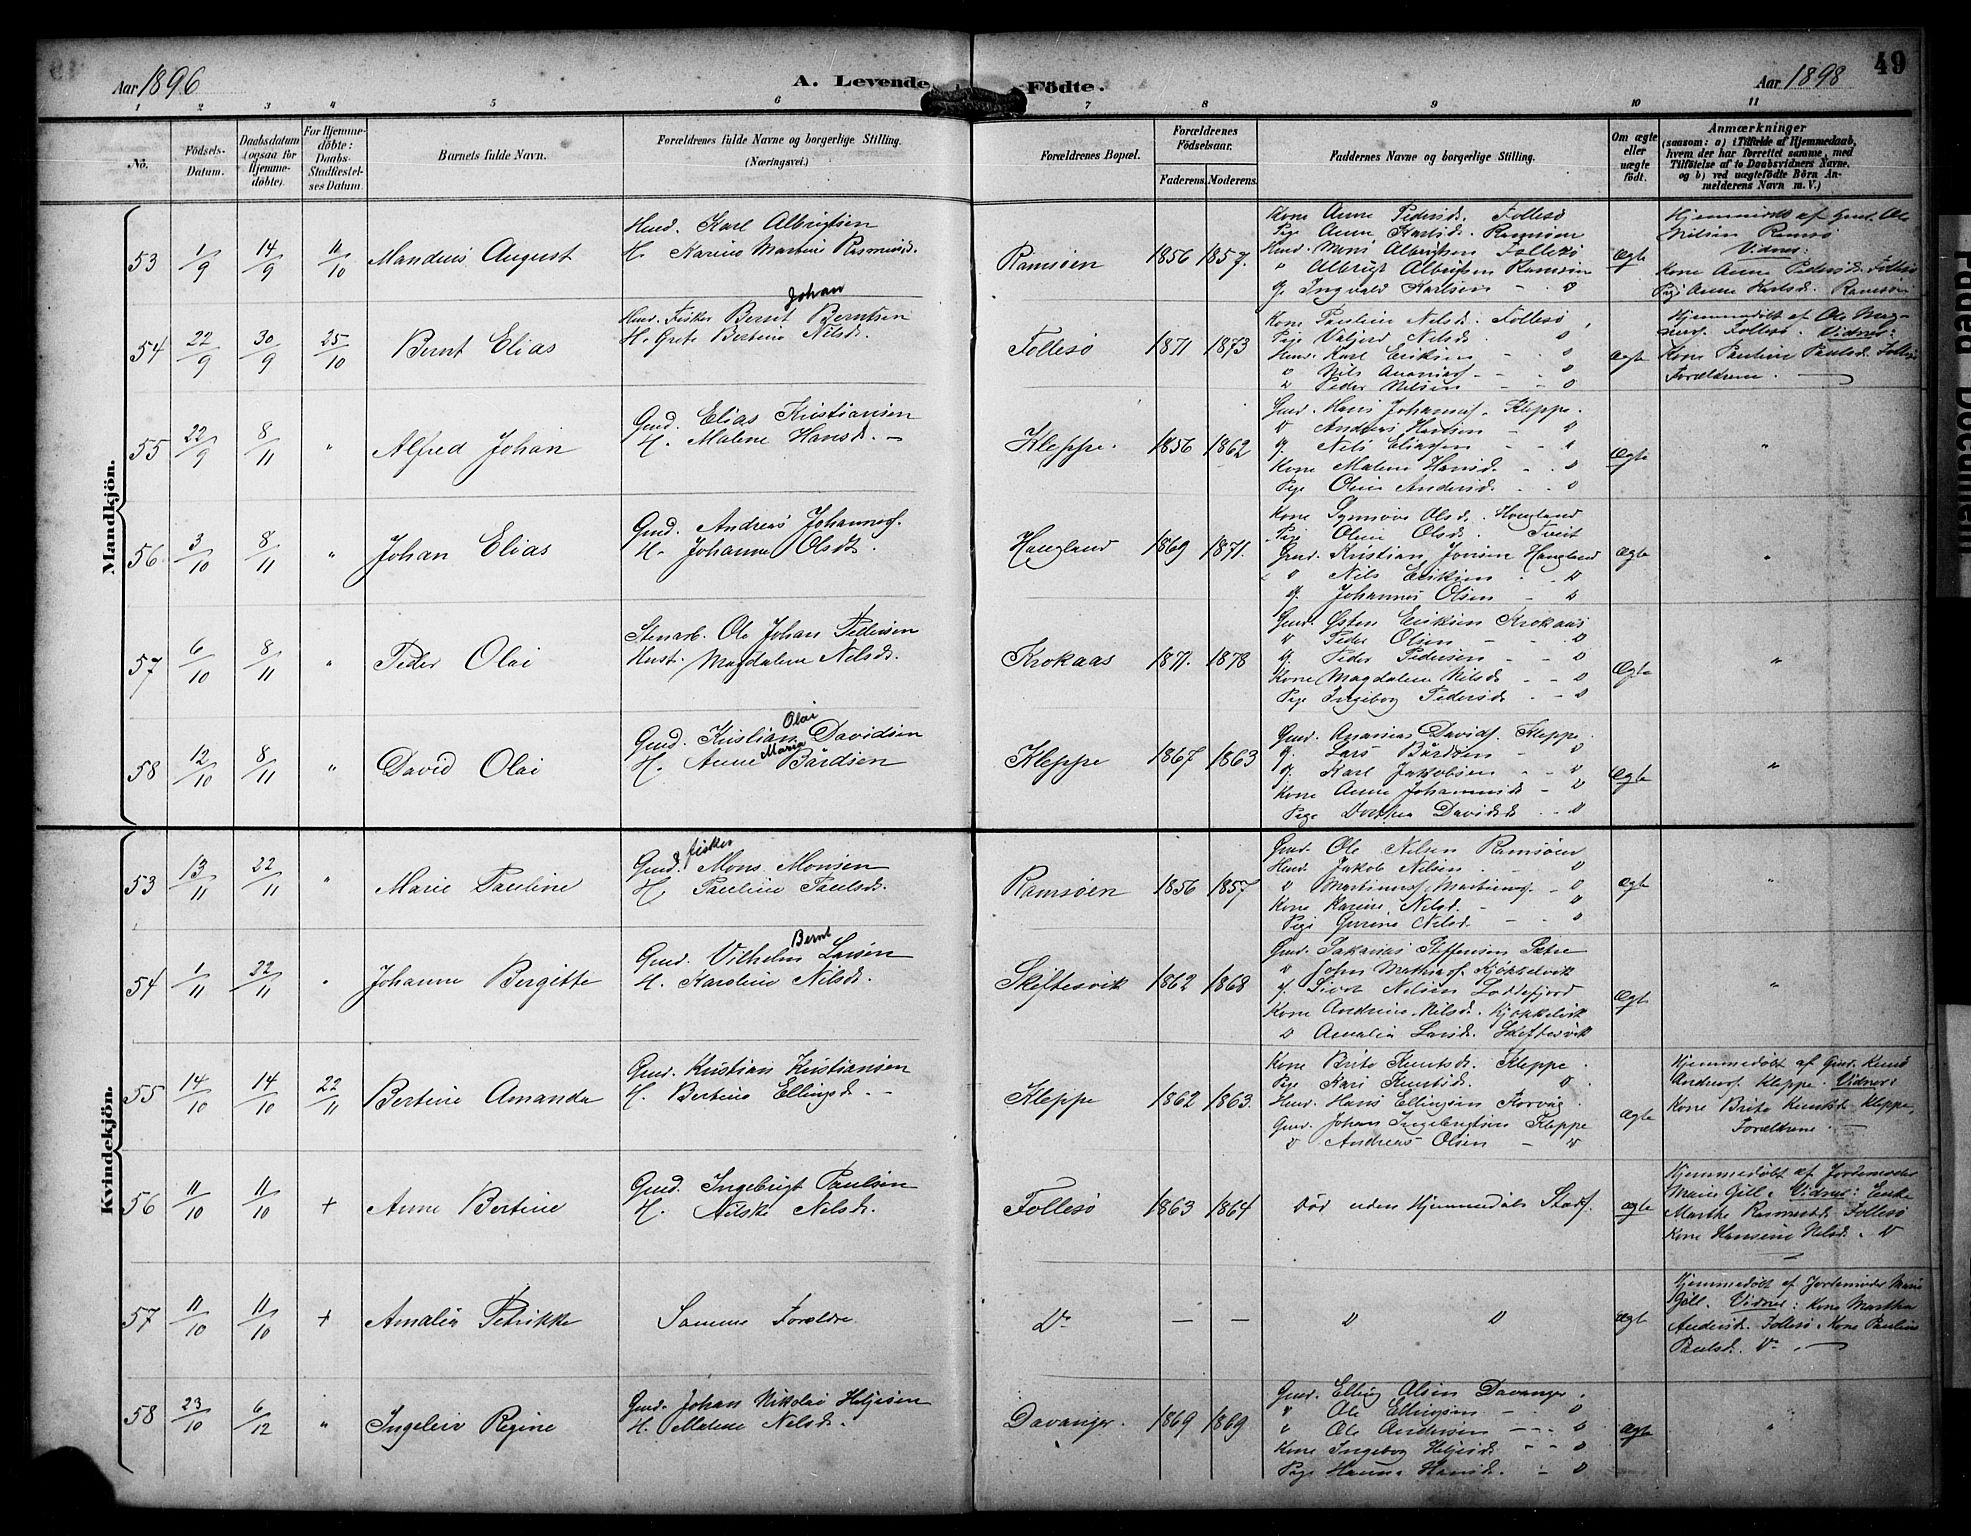 Aar 1896
A. Levende Födte.
Aar 1898
49
1 2 3 4 5 6 7 8 9 10 11
No.
Födsels-Datum.
Daabsdatum (ogsaa for Hjemme-döbte).
For Hjemme-döbte: Daabs-Stadfæstel-ses Datum.
Barnets fulde Navn.
Forældrenes fulde Navne og borgerlige Stilling.
(Næringsvei.)
Forældrenes Bopæl.
Forældrenes Födselsaar.
Faderens. Moderens.
Faddernes Navne og borgerlige Stilling.
Om ægte eller uægte födt.
Anmærkninger
(saasom: a) i Tilfælde af Hjemmedaab,
hvem der har forrettet samme, med
Tilföielse af to Daabsvidners Navne,
og b) ved uægtefödte Börn An-
melderens Navn m. V.)
Mandkjön.
53 1/9 14/9 11/10 Mandius August
Karl Albrigtsen
H. Karine Martine Rasmusd.
Ramsöen 1856 1857. Ægte
Kone Anne Pedersd. Follesö
Pige Anne Karlsd. Ramsöen
Mons Albrigtsen Follesö
" Albrigt Albrigtsen Ramsöen
G. Ingvald Karlsen
Hjemmedöbt af Gmd. Ole
Nilsen Ramsö
Vidner:
Kone Anne Pedersd. Follesö
Pige Anne Karlsd. Ramsöen
54 22/9 30/9 25/10 Bernt Elias
Johan
Fisker Bernt Berntsen
H. Grete Bertine Nilsd.
Follesö 1871 1873 Ægte
Kone Pauline Nilsd. Follesö
Pige Nilsd.
Karl Eriksen
Nils
Peder Nilsen
Hjemmedöbt af Ole
Follesö. Vidner:
Kone Pauline Paulsd. Follesö
Forældrene.
55 22/9 8/11 " Alfred Johan
Gmd. Elias Kristiansen
H. Malene Hansd.
Kleppe. 1856 1862 Ægte "
Gmd. Hans Johannes. Kleppe.
Andreas Hansen
G. Nils Eliassen
Kone Malene Hansd.
Pige Oline Andersd.
56 3/10 8/11 " Johan Elias
Gmd. Andreas Johannes.
H. Johanne Olsdt.
Haugland 1869 1871. Ægte "
Kone Synnöve Olsd. Haugland
Pige Oline Olsd. Tveit
Gmd. Kristian Jonsen Haugland
Nils Eriksen
G. Johannes Olsen
57 6/10 8/11 " Peder Olai
Stenarb. Ole Johan Pedersen
Hust. Magdalene Nilsd.
Krokaas 1871. 1878 Ægte "
Gmd. Östen Eriksen Krokaas
Peder Olsen
G. Peder Pedersen
Kone Magdalene Nilsd.
Pige Ingeborg Pedersd.
58 12/10 8/11 " David Olai
Olai
Gmd. Kristian Davidsen
Maria
H. Anne Bårdsen
Kleppe 1867 1863 Ægte "
Gmd. Ananias Davids. Kleppe
G. Lars Bårdsen
G. Karl Jakobsen
Kone Anne Johannesd.
Pige Dorthea Davidsd.
Kvindekjön.
53 13/11 22/11 " Marie Pauline
fisker
Gmd. Mons Monsen
H. Pauline Paulsd.
Ramsöen 1856 1857 Ægte "
Gmd. Ole Nilsen Ramsöen
Jakob Nilsen
Martinus Martinus.
Kone Karine Nilsd.
Pige Gurine Nilsd.
54 1/11 22/11 " Johanne Bergitte
Bernt
Gmd. Vilhelm Larsen
H. Karoline Nilsd.
Skiftesvik 1862 1868 Ægte "
Gmd. Sakarias Steffensen Sætre
John Mathias. Kjökkelvik
G. Sivert Nilsen Loddefjord
Kone Andrine Nilsd. Kjökkelvik
Amalia Larsd. Skiftesvik
55 14/10 14/10 22/11 Bertine Amanda
Gmd. Kristian Kristiansen
H. Bertine Ellingsd.
Kleppe 1862 1863. Ægte
Kone Brite Knutsd. Kleppe
Pige Kari Knutsd.
Hans Ellingsen Forvåg
Gmd. Johan Ingebrigtsen Kleppe
Andreas Olsen
Hjemmedöbt af Gmd. Knud
Anders. Kleppe. Vidner:
Kone Brite Knutsd. Kleppe,
Forældrene.
56 11/10 11/10 + Anne Bertine
Gmd. Ingebrigt Paulsen
H. Nilske Nilsd.
Follesö 1863 1864 Ægte
Död uden Hjemmedåbs Stadf.
Hjemmedöbt af Jordemoder
Marie Gill. Vidner: Enke
Marthe Rasmusd. Follesö
Kone Hansine Nilsd.
57 11/10 11/10 + Amalia Petrikke
Samme Forældre
Do — — " " Ægte
Hjemmedöbt af Jordemoder Marie
Gill. Vidner: Kone Martha
Andersd. Follesö. Kone Pauline
Paulsd. Do
58 23/10 6/12 " Ingeleiv Regine
Gmd. Johan Nikolai Heljesen
H. Malene Nilsd.
Davanger. 1869 1869 Ægte "
Gmd. Elling Olsen Davanger.
Ole Ellingsen
Ole Andersen
Kone Ingeborg Heljesd.
Pige Hanna Hansd.